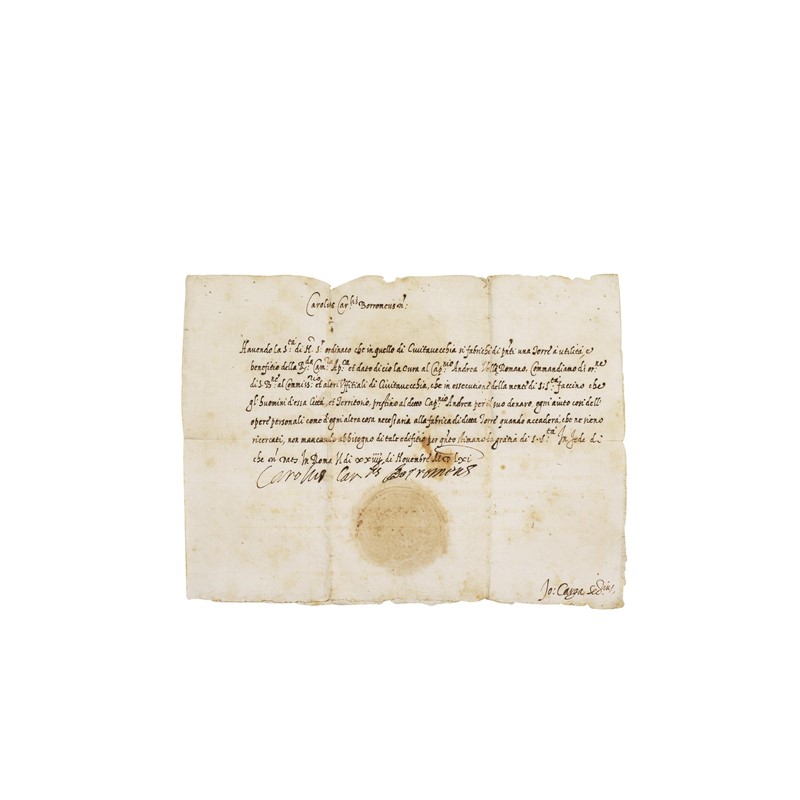 Carolus Car.lis Borromeus
Havendo la S.tà di N.ro S.re ordinato che in quello di Civitavecchia si fabrichi di p̃nti una Torre à utilità, e
benefitio della R.da Cam.ra Ap.ca et dato di cio la cura al Cap.nio Andrea Romano. Commandiamo di or.ne
di S. B.ne al Commiss.rio et altri Offitiali di Civitavecchia, che in essecutione della mente di S. S.tà faccino che
gl'huomini d'essa Città, et Territorio, prestino al detto Cap.nio Andrea per il suo denaro ogni aiuto così dell'
opere personali come d'ogni altra cosa necessaria alla fabrica di detta Torre quando accaderà, che ne sieno
ricercati, non mancando al bisogno di tale edifitio per q.nto stimano la gratia di S. S.tà In fede di
che Dat. In Roma li di xxiiij di Novembre M D lxi
Carolus Car.lis Borromeus
Jo: Secr.ius